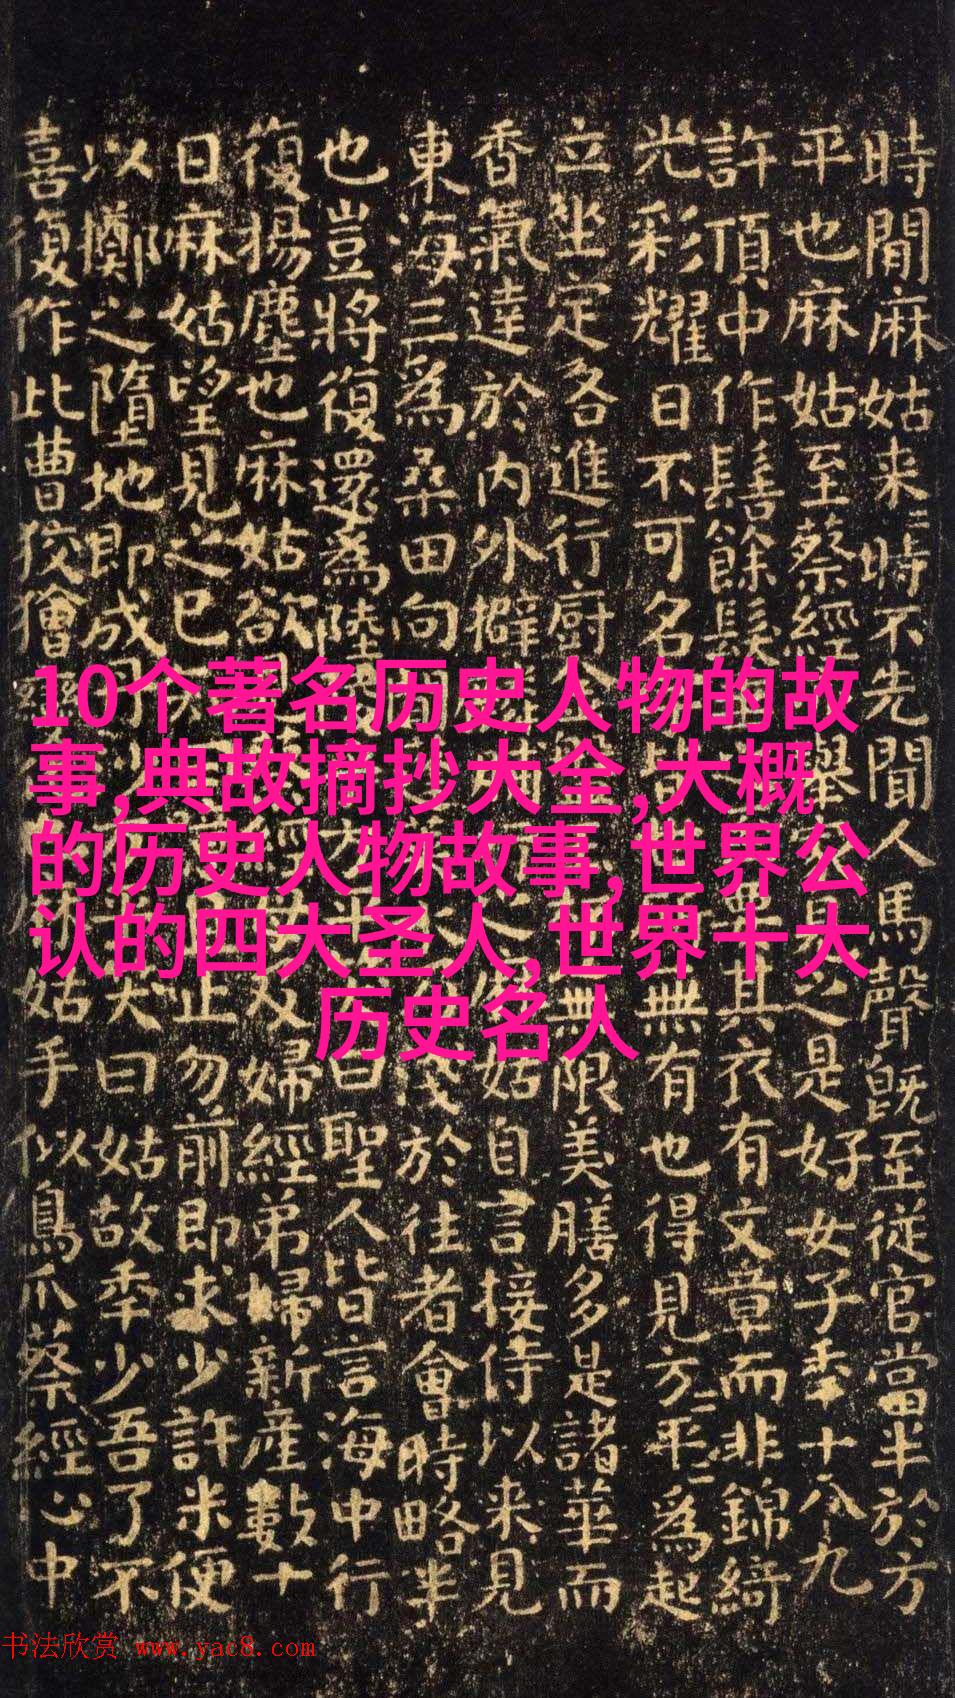 時間麻姑来〻時不先聞人馬聲既至從官當半於方
平也麻姑至蔡經舉見之是好女子年十八九
許頂中作髻餘髮其衣有文章而非錦綺
光彩耀日不可名皆無有也得見方〻平〻為起
立坐定各進行廚金無限美膳多是諸華而
香氣達於内外擗姑自言接侍以来見
東海三為桑田向淺於往者會時略半
也豈將復還為陸曰聖人皆言海中行
復揚塵也麻姑欲及婦經弟婦新產數十
日麻姑望見之已止勿前即求少許米便
以擲之墮地即成曰姑故年少吾了不
喜復作此曹狡獪變姑手似鳥爪蔡經心中
10个著名历史人物的故
事,典故摘抄大全,大概
的历史人物故事,世界公
认的四大圣人,世界十大
历史名人
书法欣赏 www.yac8.com